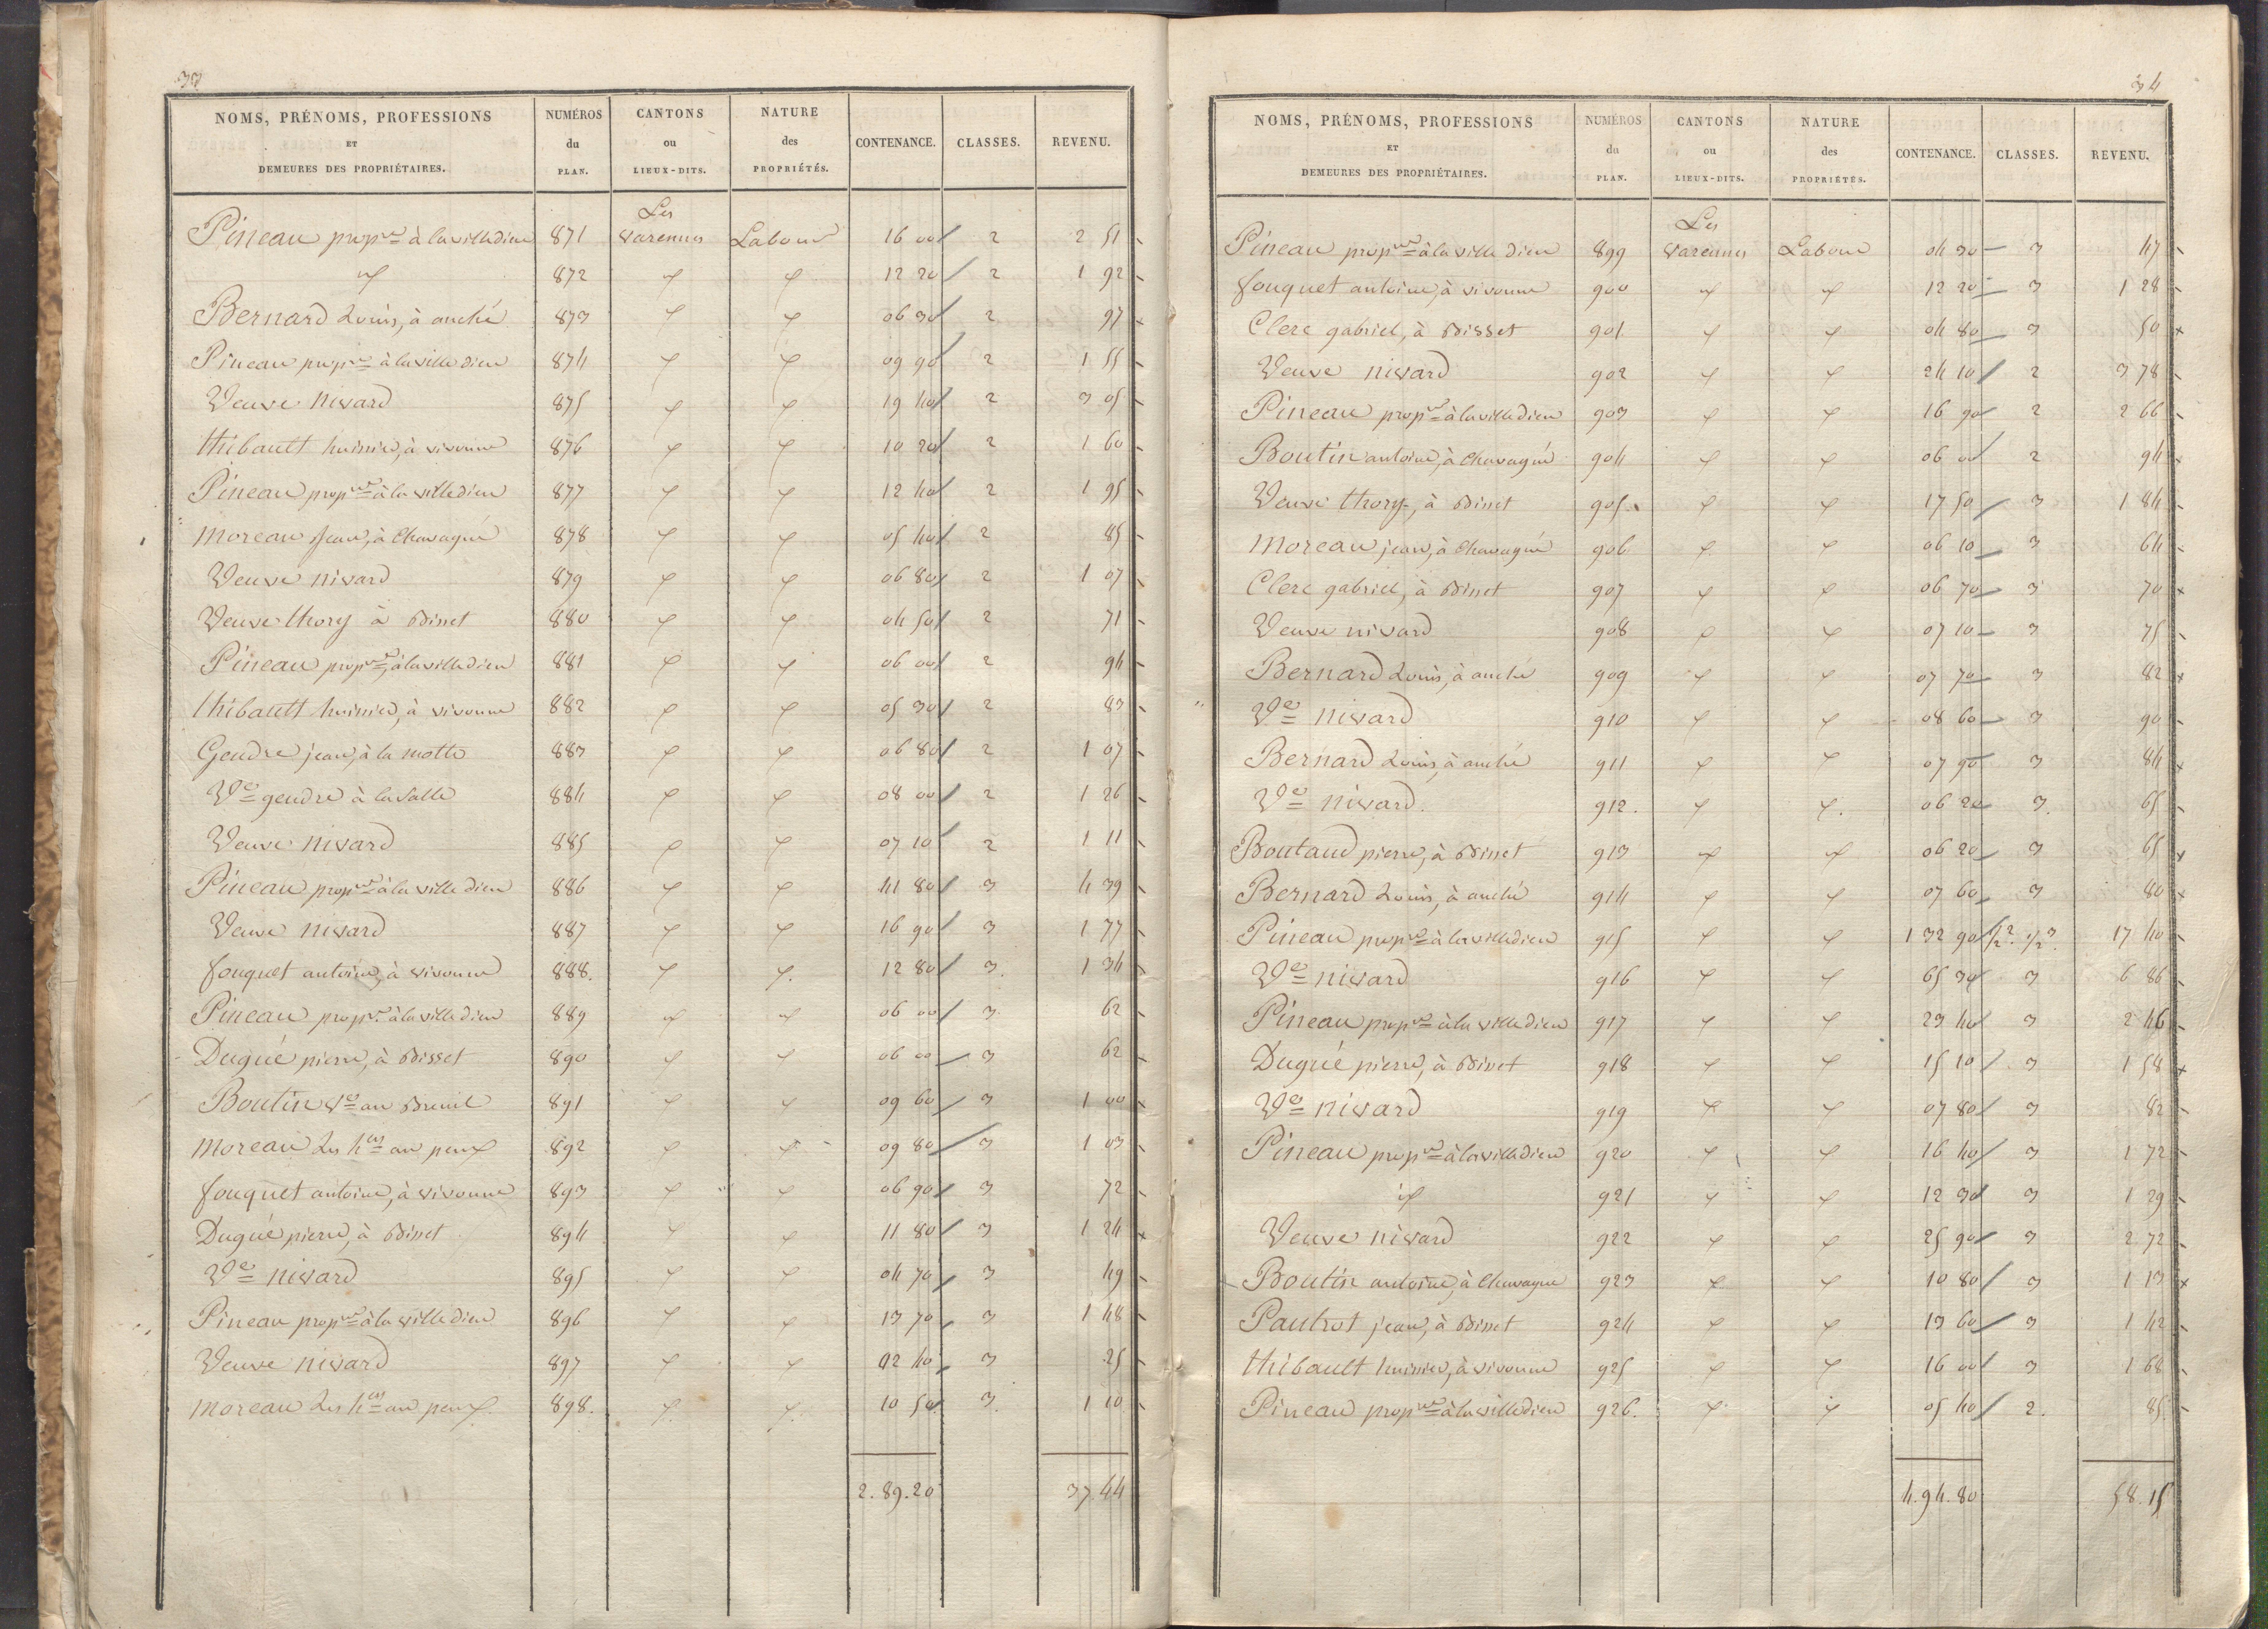 33
NOMS, PRÉNOMS, PROFESSIONS ET DEMEURES DES PROPRIÉTAIRES. NUMÉROS du PLAN. CANTONS ou LIEUX-DITS. NATURE des PROPRIÉTÉS. CONTENANCE. CLASSES. REVENU.
Pineau prop.re à lavilledieu 871 Les varennes Labour 16 00 2 2 51
id 872 id id 12 20 2 1 92
Bernard Louis, à anché 873 id id 06 30 2 97
Pineau prop.re à lavilledieu 874 id id 09 90 2 1 55
Veuve nivard 875 id id 19 40 2 3 05
thibault huissier, à vivonne 876 id id 10 20 2 1 60
Pineau prop.re à la villedieu 877 id id 12 40 2 1 95
moreau Jean, à Chavagné 878 id id 05 40 2 85
Veuve nivard 879 id id 06 80 2 1 07
Veuve thory à Bisset 880 id id 04 50 2 71
Pineau prop.re à lavilledieu 881 id id 06 00 2 94
thibault huissier, à vivonne 882 id id 05 30 2 83
Gendre jean, à la motte 883 id id 06 80 2 1 07
Ve gendre à la Salle 884 id id 08 00 2 1 26
Veuve nivard 885 id id 07 10 2 1 11
Pineau prop.re à la villedieu 886 id id 41 80 3 4 39
Veuve nivard 887 id id 16 90 3 1 77
fouquet antoine, à vivonne 888. id id 12 80 3. 1 34
Pineau prop.re à lavilledieu 889 id id 06 00 3 62
Dugué pierre, à Bisset 890 id id 06 00 3 62
Boutin Ve au Breuil 891 id id 09 60 3 1 00
moreau Les h.ers au peux 892 id id 09 80 3 1 03
fouquet antoine, à vivonne 893 id id 06 90 3 72
Dugué pierre, à Bisset 894 id id 11 80 3 1 24
Ve nivard 895 id id 04 70 3 49
Pineau prop.re à la villedieu 896 id id 13 70 3 1 48
Veuve nivard 897 id id 02 40 3 25
moreau Les h.ers au peux 898. id id 10 50 3. 1 10
2.89.20 37.44
34
NOMS, PRÉNOMS, PROFESSIONS ET DEMEURES DES PROPRIÉTAIRES. NUMÉROS du PLAN. CANTONS ou LIEUX-DITS. NATURE des PROPRIÉTÉS. CONTENANCE. CLASSES. REVENU.
Pineau prop.re à la villedieu 899 Les varennes Labour 04 30 3 47
fouquet antoine, à vivonne 900 id id 12 20 3 1 28
Clerc gabriel, à Bisset 901 id id 04 80 3 50
Veuve nivard 902 id id 24 10 2 3 78
Pineau prop.re à lavilledieu 903 id id 16 90 2 2 66
Boutin antoine, à Chavagné 904 id id 06 00 2 94
Veuve thory, à Bisset 905 id id 17 50 3 1 84
moreau jean, à Chavagné 906 id id 06 10 3 64
Clerc gabriel, à Bisset 907 id id 06 70 3 70
Veuve nivard 908 id id 07 10 3 75
Bernard Louis, à anché 909 id id 07 70 3 82
Ve nivard 910 id id 08 60 3 90
Bernard Louis, à anché 911 id id 07 90 3 84
Ve nivard. 912. id id 06 20 3. 65
Boutaud pierre, à Bisset 913 id id 06 20 3 65
Bernard Louis, à anché 914 id id 07 60 3 80
Pineau prop.re à lavilledieu 915 id id 1 32 90 1/2 2. 1/2 3. 17 40
Ve nivard 916 id id 65 30 3 6 86
Pineau prop.re à la villedieu 917 id id 23 40 3 2 46
Dugué pierre, à Bisset 918 id id 15 10 3 1 58
Ve nivard 919 id id 07 80 3 82
Pineau prop.re à lavilledieu 920 id id 16 40 3 1 72
id 921 id id 12 30 3 1 29
Veuve nivard 922 id id 25 90 3 2 72
Boutin antoine, à Chavagné 923 id id 10 80 3 1 13
Pautrot jean, à Bisset 924 id id 13 60 3 1 42
thibault huissier, à vivonne 925 id id 16 00 3 1 68
Pineau prop.re à lavilledieu 926. id id 05 40 2. 85
4.94.80 58.15